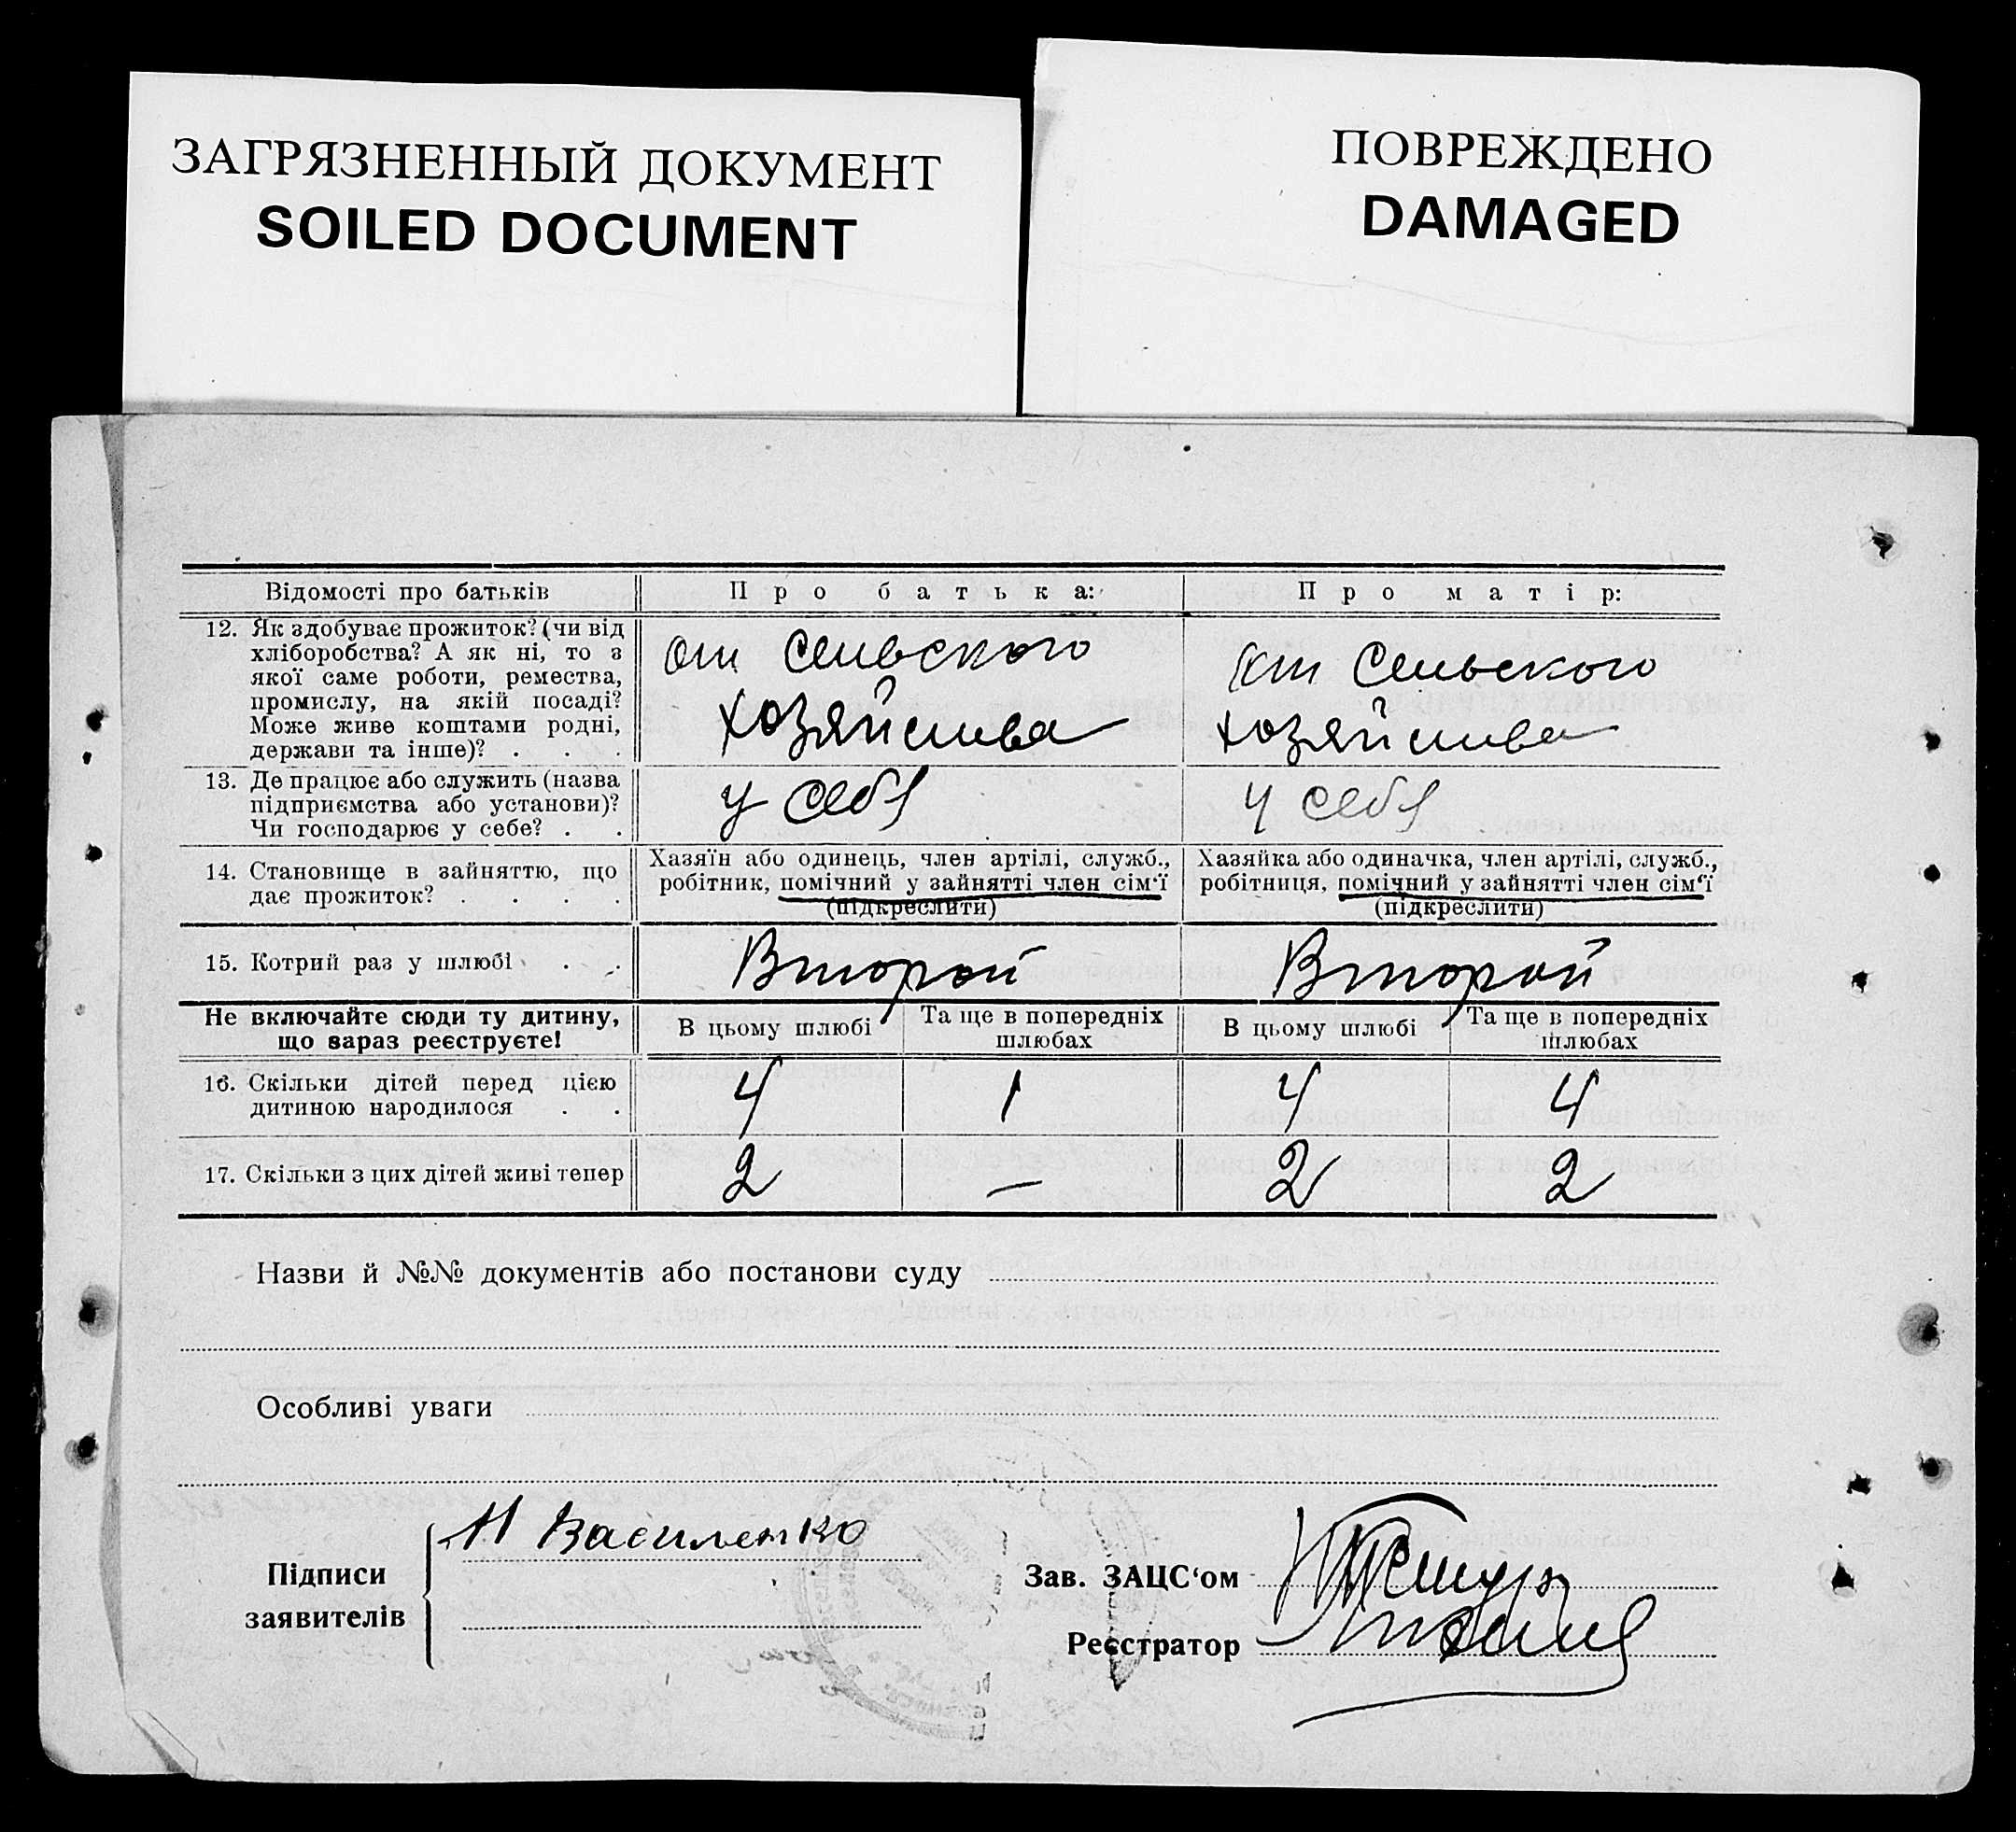 ЗАГРЯЗНЕННЫЙ ДОКУМЕНТ
SOILED DOCUMENT
ПОВРЕЖДЕНО
DAMAGED
Відомості про батьків
Про батька:
Про матір:
12. Як здобуває прожиток? (чи від
хліборобства? А як ні, то з
якої саме роботи, ремества,
промислу, на якій посаді?
Може живе коштами родні,
держави та інше)? . . .
от Сельского
хозяйства
от Сельского
хозяйства
13. Де працює або служить (назва
підприємства або установи)?
Чи господарює у себе? . .
у себя
у себя
14. Становище в зайняттю, що
дає прожиток? . . . .
Хазяїн або одинець, член артілі, служб.,
робітник, помічний у зайнятті член сім‘ї
(підкреслити)
Хазяйка або одиначка, член артілі, служб.,
робітниця, помічний у зайнятті член сім‘ї
(підкреслити)
15. Котрий раз у шлюбі . .
Второй
Второй
Не включайте сюди ту дитину,
що зараз реєструєте!
В цьому шлюбі
Та ще в попередніх
шлюбах
В цьому шлюбі
Та ще в попередніх
шлюбах
16. Скільки дітей перед цією
дитиною народилося . .
4
1
4
4
17. Скільки з цих дітей живі тепер
2
—
2
2
Назви й №№ документів або постанови суду
Особливі уваги
Підписи
заявителів
Н Василенко
Зав. ЗАЦС‘ом
Реєстратор